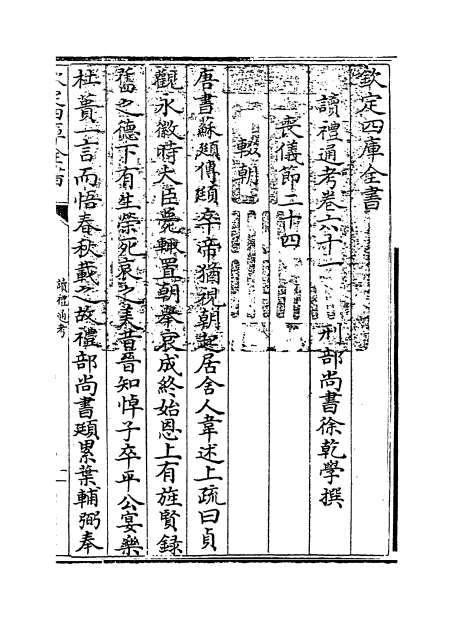 欽定四庫全書
讀禮通考卷六十一 刑部尚書徐乾學撰
喪儀節二十四
輟朝
唐書蘇頲傳頲卒帝猶視朝起居舍人韋述上疏曰貞
觀永徽時大臣薨輒置朝舉哀成終始恩上有旌賢録
舊之德下有生榮死哀之美昔晉知悼子卒平公宴樂
杜蕢一言而悟春秋載之故禮部尚書頲累葉輔弼奉
欽定四庫全書
讀禮通考